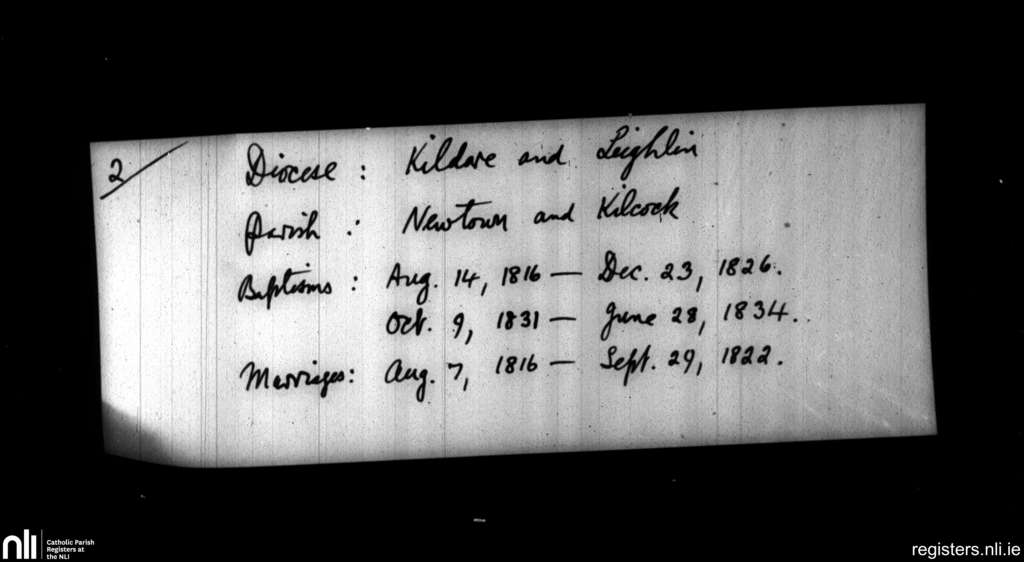 2/
Diocese : Kildare and Leighlin
Parish : Newtown and Kilcock
Baptisms : Aug. 14, 1816 — Dec. 23, 1826.
Oct. 9, 1831 — June 28, 1834.
Marriages: Aug. 7, 1816 — Sept. 29, 1822.
nli
Catholic Parish
Registers at
the NLI
registers.nli.ie